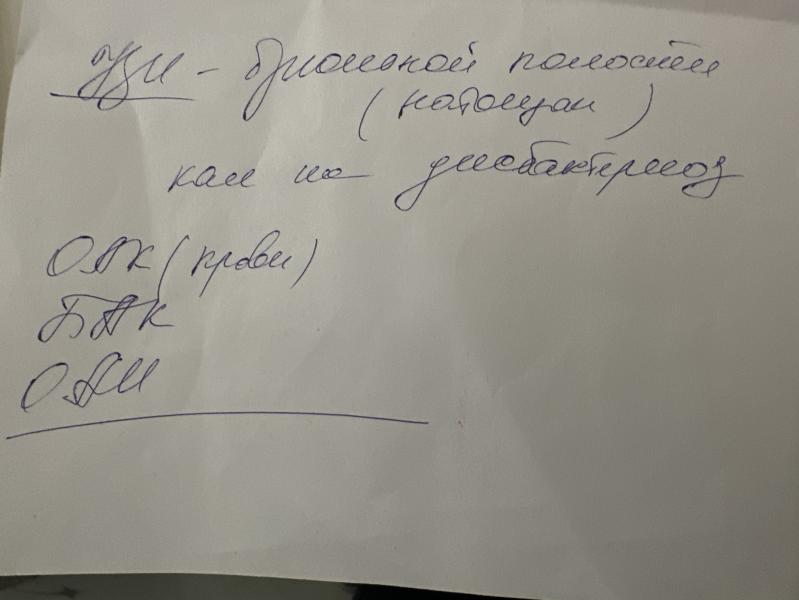 УЗИ - брюшной полости
(натощак)
кал на дисбактериоз
ОАК (крови)
БАК
ОАМ